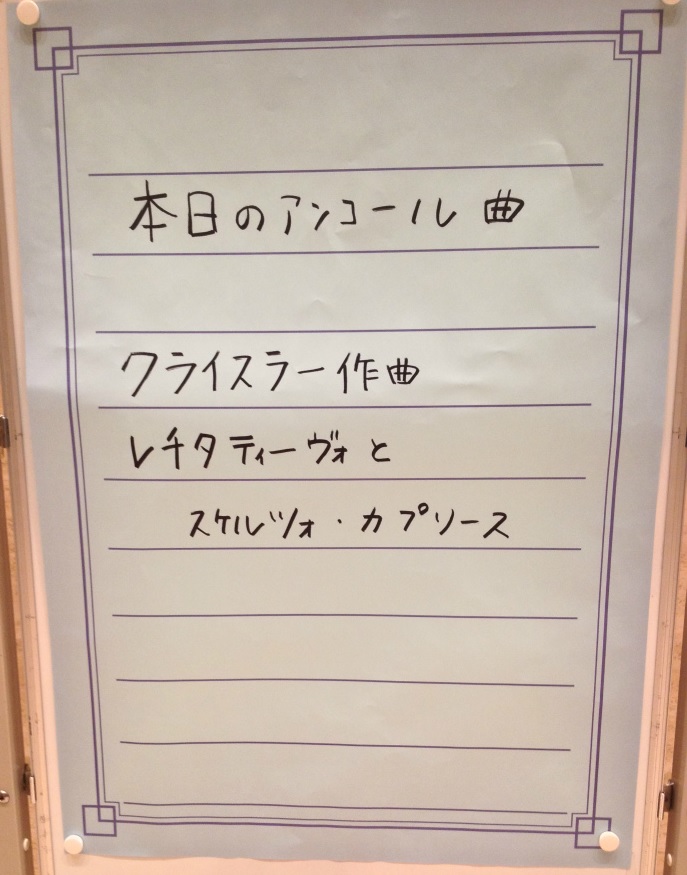 本日のアンコール曲
クライスラー作曲
レチタティーヴォと
スケルツォ・カプリース